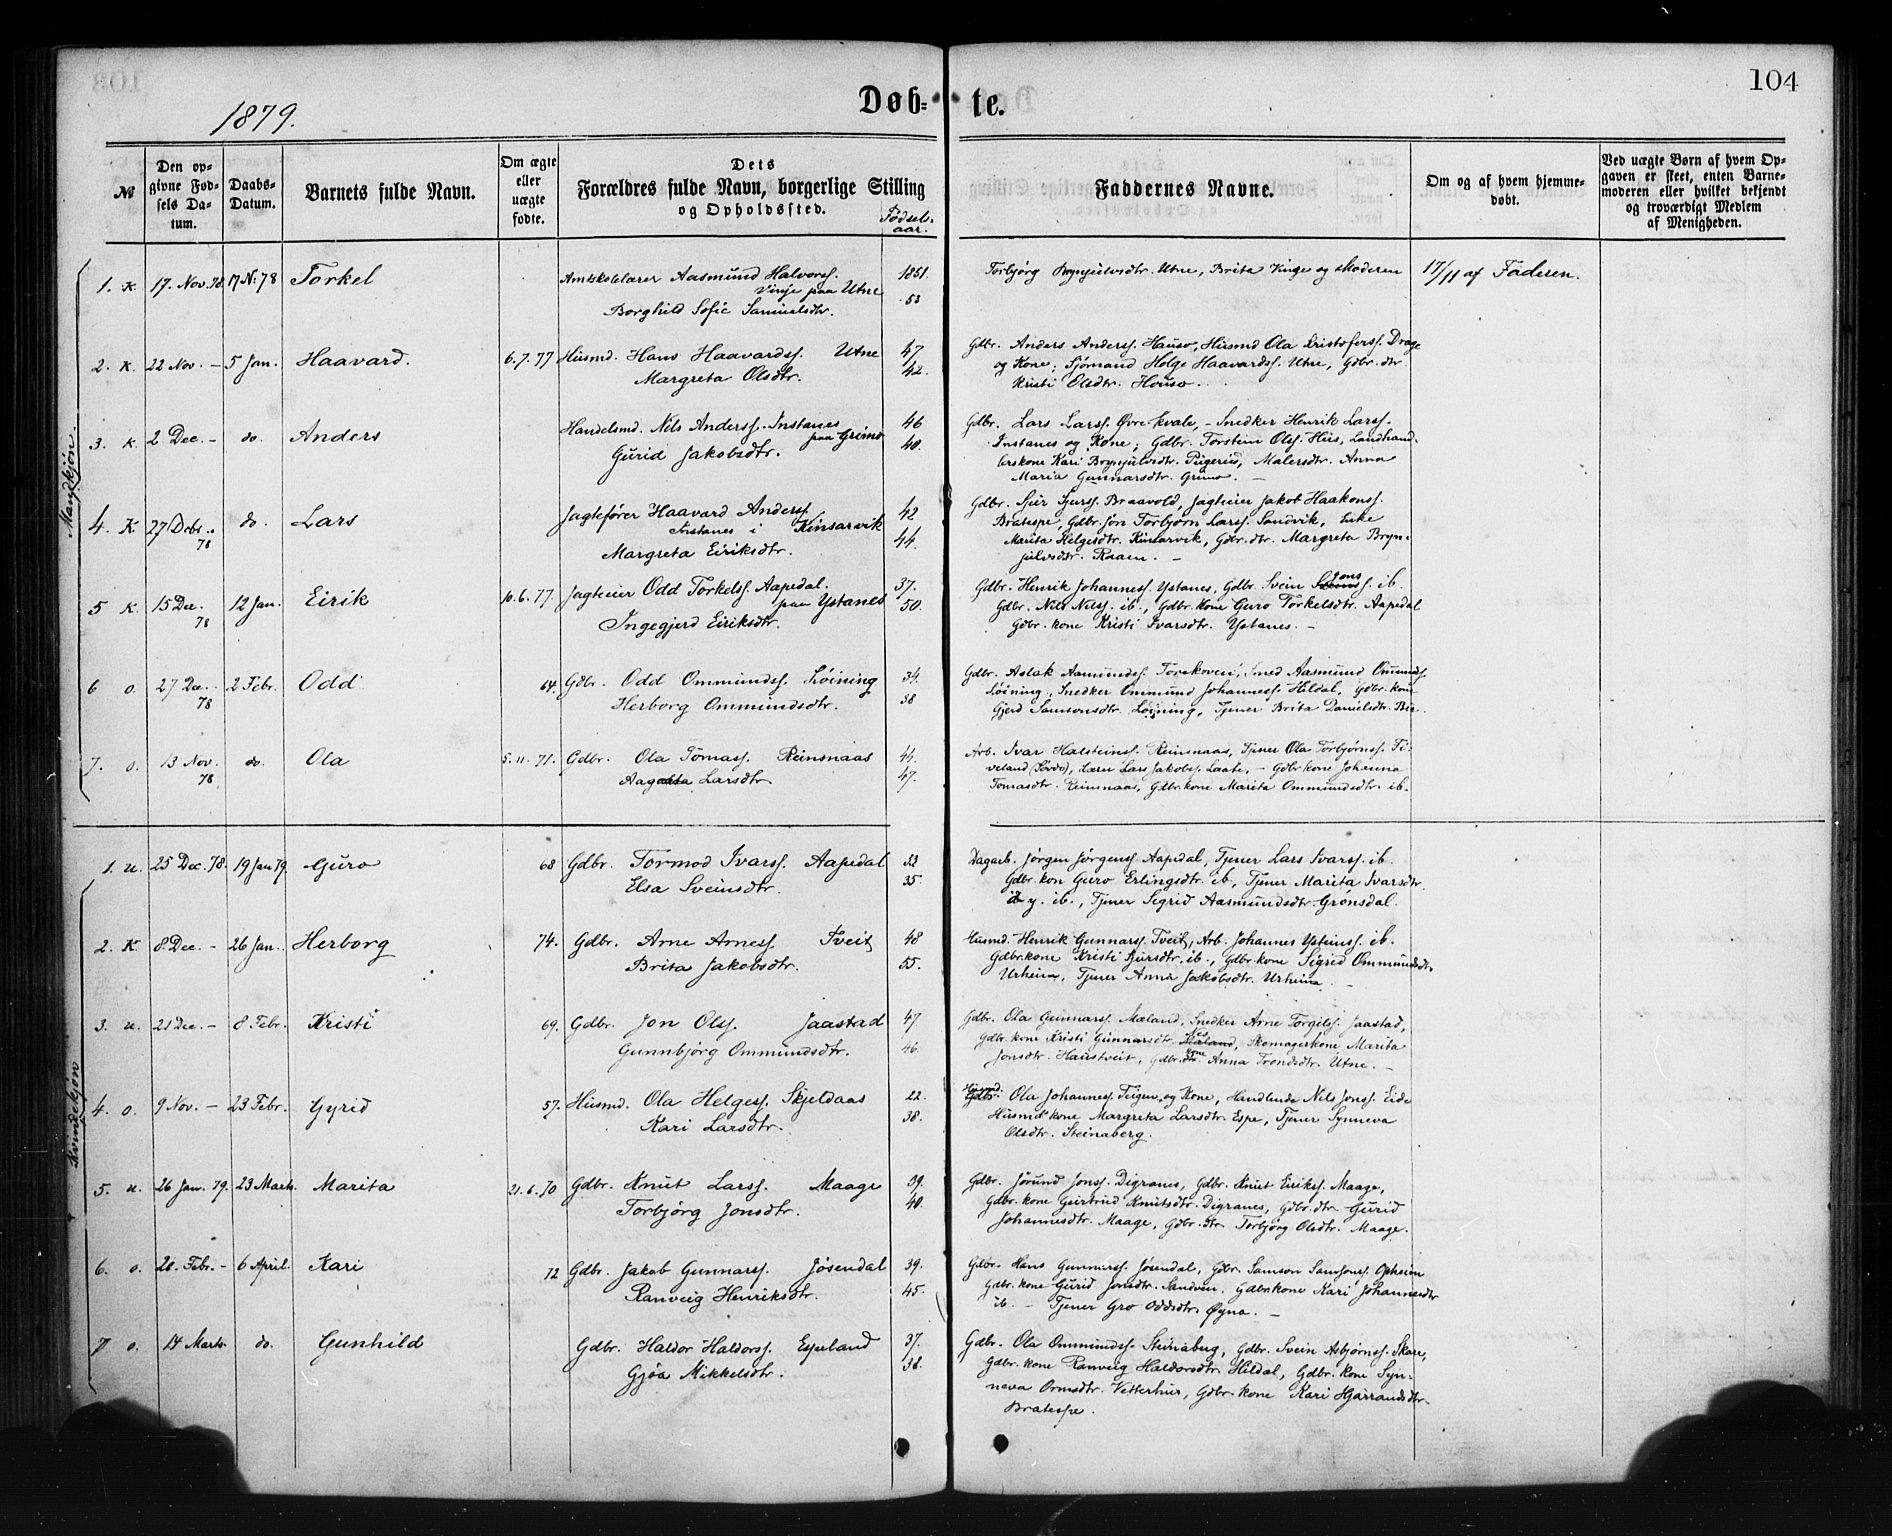 103
104
1879.
Døb- te.
№ | Den opgivne Fødsels Datum. | Daabs-Datum. | Barnets fulde Navn. | Om ægte eller uægte fødte. | Dets Forældres fulde Navn, borgerlige Stilling og Opholdssted. | Fødselaar. | Faddernes Navne. | Om og af hvem hjemmedøbt. | Ved uægte Børn af hvem Opgaven er skeet, enten Barnemoderen eller hvilket bekjendt og troværdigt Medlem af Menigheden.
Mandkjøn.
1. K. 17. Nov. 78. 17 N: 78 Torkel Amtskolelærer Aasmund Halvorss. 1851. Torbjørg Brynjulvsdtr. Utne, Brita Kinge og Moderen 17/11 af Faderen.
Vinje paa Utne
Borghild Sofie Samuelsdtr. 53
2. K. 22 Nov. – 5 Jan. Haavard. 6. 7. 77 Husmd. Hans Haavardss. Utne 47. Gdbr. Anders Anderss. Hauso, Husmd Ola Kristoferss. Drage
Margreta Olsdtr. 42. og Kone; Sjømand Helge Haavardss. Utne, Gdbr. dtr
Kristi Olsdtr. Houso.
3. K. 2 Dec. – do. Anders Handelsmd. Nils Anderss. Instanes 46 Gdbr. Lars Larss. Øvre-Kvale, – Snedker Henrik Larss.
paa Grimo
Gurid Jakobsdtr. 40. Instanes og Kone; Gdbr. Torstein Olss. Hus, Landhand-
lerskone Kari Brynjulvsdtr. Pugerud, Malersdtr. Anna
Maria Gunnarsdtr. Grimo. –
4. K 27 Decbr. 78 do. Lars Jagtefører Haavard Anderss. 42 Gdbr. Sjur Sjurss. Braavold, Jagteier Jakob Haakonss.
Instanes i Kinsarvik
Margreta Eiriksdtr. 44. Bratespe, Gdbr. søn Torbjørn Larss. Sandvik, Enke
Marita Helgesdtr. Kinsarvik, Gdbr. dtr. Margreta Bryn-
julvsdtr. Raam. –
5 K. 15 Dec. 78 12 Jan. Eirik 10. 6. 77. Jagteier Odd Torkelss. Aapedal. 37. Gdbr. Henrik Johanness. Ystanes, Gdbr. Svein Jonss. ib.
paa Ystanes 50. Gdbr. Nils Nilss. ib., Gdbr. kone Guro Torkelsdtr. Aapedal
Ingegjerd Eiriksdtr. Gdbr. kone Kristi Ivarsdtr. Ystanes. –
6 o. 27 Dec. 78 2 Febr. Odd 64. Gdbr. Odd Ommundss. Løining 34. Gdbr. Aslak Aamundss. Smed Aasmund Ommundss.
Herborg Ommundsdtr. 38 Løining, Snedker Ommund Johanness. Hildal, Gdbr. kone
Gjerd Samsonsdtr. Løining, Tjener Brita Danielsdtr.
7. o. 13 Nov. 78 do. Ola 5. 11. 71. Gdbr. Ola Tomass. Reinsnaas 44. Arb. Ivar Halsteinss. Reinsnaas, Tjener Ola Torbjørnss. Ti-
Aagata Larsdtr. 47. veland, Lærer Lars Jakobss. Laate, – Gdbr. kone Johanna
Tomasdtr. Reinsnaas, Gdbr. kone Marita Ommundsdtr. ib.
Kvindekjøn
1. u. 25 Dec. 78. 19 Jan 79. Guro 68 Gdbr. Tormod Ivarss. Aapedal 33 Dagarb. Jørgen Jørgenss. Aapedal, Tjener Lars Ivarss. ib.
Elsa Sveinsdtr. 35. Gdbr. kon Guro Erlingsdtr. ib, Tjener Marita Ivarsdtr
y. ib., Tjener Sigrid Aasmundsdtr. Grønsdal.
2. K 8. Dec. – 26 Jan. Herborg 74. Gdbr. Arne Arness. Tveit 48 Husmd. Henrik Gunnarss. Tveit, Arb. Johannes Ysteinss. ib.
Brita Jakobsdtr. 55. Gdbr. kone Kristi Sjursdtr. ib., Gdbr. kone Sigrid Ommundsdtr
Urheim, Tjener Anna Jakobsdtr. Urheim.
3. u. 21 Dec. – 8 Febr. Kristi 69. Gdbr. Jon Olss. Jaastad 47 Gdbr. Ola Gunnarss. Mæland, Snedker Arne Torgilss. Jaastad,
Gunnbjørg Ommundsdtr. 46. Gdbr. kone Kristi Gunnarsdtr. Nes, Skomagerkone Marita
Jonsdtr. Haustveit, Gdbr. kone Anna Trondsdtr. Utne. –
4. o. 9 Nov. – 23 Febr. Gyrid 57. Husmd. Ola Helgess. Skjeldaas 22. Husmd. Ola Johanness. Teigen og Kone, Handlende Nils Jonss. Eide
Kari Larsdtr. 38. Husmd. kone Margreta Larsdtr. Espe, Tjener Synneva
Olsdtr. Steinaberg.
5. u. 26 Jan. 79. 23 Marts. Marita 21. 6. 70 Gdbr. Knut Larss. Maage 39. Gdbr. Jørund Jonss. Digranes, Gdbr. Knut Eirikss. Maage,
Torbjørg Jonsdtr. 40. Gdbr. kone Geirtrud Knutsdtr. Digranes, Gdbr. dtr. Gurid
Johannesdtr. Maage, Gdbr. dtr. Torbjørg Olsdtr. Maage.
6. o. 20. Febr. – 6 April. Kari 72 Gdbr. Jakob Gunnarss. Jøsendal 39. Gdbr. Hans Gunnarss. Jøsendal, Gdbr. Samson Samsonss. Opheim
Ranveig Henriksdtr. 45. Gdbr. kone Gurid Jonsdtr. Sandven, Gdbrkone Kari Johannesdtr
ib. – Tjener Gro Oddsdtr. Øyna. –
7 o. 14 Marts. do. Gunhild Gdbr. Haldor Haldorss. Espeland 37. Gdbr. Ola Ommundss. Steinaberg, Gdbr. Svein Asbjørnss. Skare,
Gjøa Mikkelsdtr. 38. Gdbr. kone Ranveig Haldorsdtr. Hildal, Gdbr. kone Syn-
neva Ormsdtr. Vetterhus, Gdbr. kone Kari Hjarrandsdtr.
Bratespe.